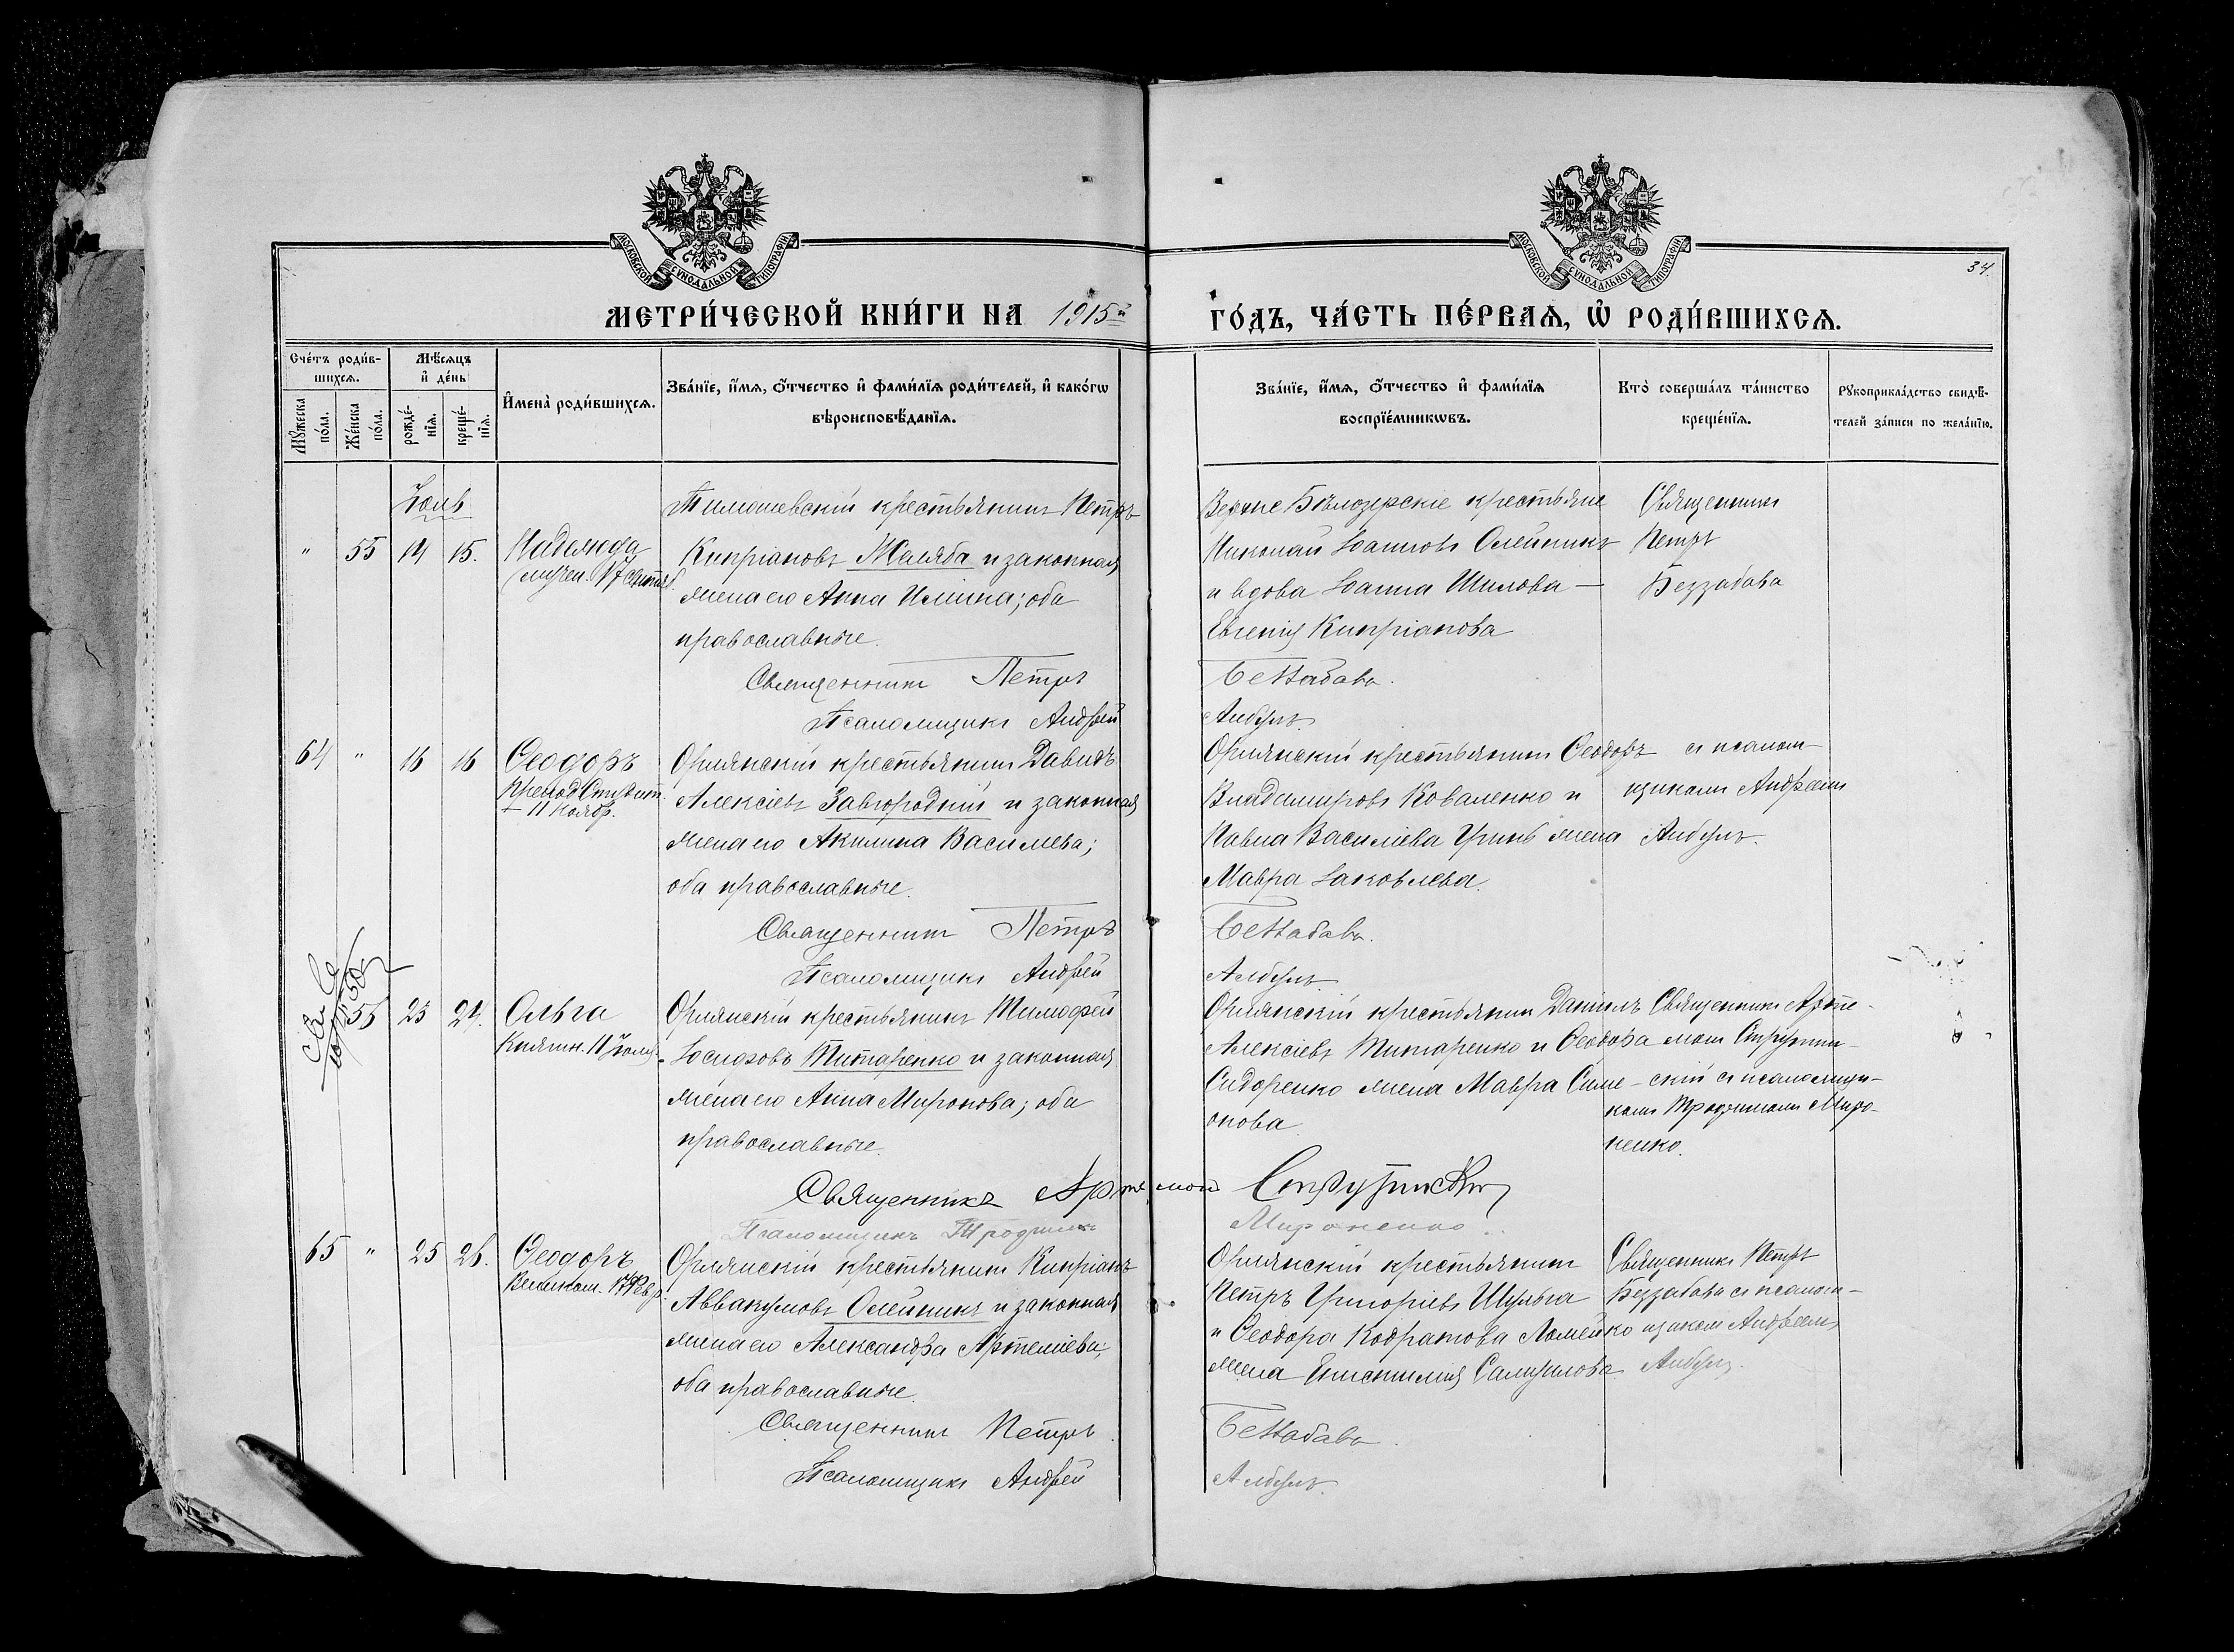 МОСКОВСКОЙ СѴНОДАЛЬНОЙ ТИПОГРАФІИ
МОСКОВСКОЙ СѴНОДАЛЬНОЙ ТИПОГРАФІИ
34.
МЕТРИ́ЧЕСКОЙ КНИ́ГИ НА 1915й
ГО́ДЪ, ЧА́СТЬ ПЕ́РВАѦ, Ѡ҆ РОДИ́ВШИХСѦ.
Сче́тъ роди́вшихсѧ.
Мꙋ́жеска по́ла.
Же́нска по́ла.
Мѣ́сѧцъ и҆ де́нь
рожде́нїѧ.
креще́нїѧ.
И҆мена̀ роди́вшихсѧ.
Зва́нїе, и҆́мѧ, ѻ҆́тчество и҆ фами́лїѧ роди́телей, и҆ како́гѡ
вѣроисповѣ́данїѧ.
Зва́нїе, и҆́мѧ, ѻ҆́тчество и҆ фами́лїѧ
воспрїе́мникѡвъ.
Кто̀ соверша́лъ та́инство
креще́нїѧ.
Рꙋкоприкла́дство свидѣ́-
телей за́писи по жела́нїю.
Іюль
" 55 14 15. Надежда
мучен. 17 Сентяб.
Тимошевскій крестьянинъ Петръ
Кипріановъ Жаляба и законная
жена его Анна Ильина; оба
православные.
Священникъ Петръ
Псаломщикъ Андрей
Верхне Бѣлозерскіе крестьяне
Николай Іоанновъ Олейникъ
и вдова Іоанна Шилова —
Евгенія Кипріанова
Беззабава.
Священникъ
Петръ
Беззабава
64 " 16 16 Ѳеодоръ
Препод. Студит.
11 Ноябр.
Орлянскій крестьянинъ Давидъ
Алексіевъ Завгородкій и законная
жена его Акилина Василіева;
оба православные.
Священникъ Петръ
Псаломщикъ Андрей
Орлянскій крестьянинъ Ѳеодоръ
Владиміровъ Коваленко и
Павла Василіева Гринь жена
Мавра Іаковлева.
Беззабава.
съ псалом-
щикомъ Андреемъ
55 23 24. Ольга
Княгин. 11 Іюля.
Орлянскій крестьянинъ Тимоѳей
Іосифовъ Титаренко и законная
жена его Анна Миронова; оба
православные.
Священникъ Артемонъ Струтинскій
Псаломщикъ Трофимъ Мироненко
Орлянскій крестьянинъ Даніилъ
Алексіевъ Титаренко и Ѳеодора
Сидоренко жена Мавра Симе-
онова
Священникъ Арте-
монъ Струтин-
скій съ псаломщи-
комъ Трофимомъ Миро-
ненко.
65 " 25 26. Ѳеодоръ
Великом. 17 Февр.
Орлянскій крестьянинъ Кипріанъ
Аввакумовъ Олейникъ и законная
жена его Александра Артеміева,
оба православные.
Священникъ Петръ
Псаломщикъ Андрей
Орлянскій крестьянинъ
Петръ Григоріевъ Шульга
и Ѳеодора Кодратова Ломейко
жена Самуилова
Беззабава
Священникъ Петръ
Беззабава съ псалом-
щикомъ Андреемъ